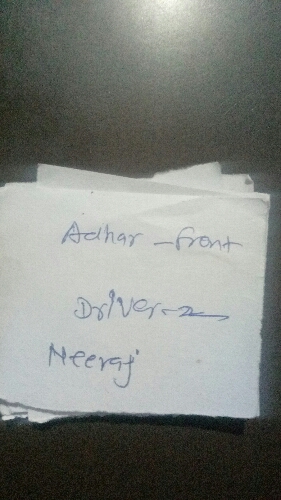 Adhar - front
Driver - 2
Neeraj